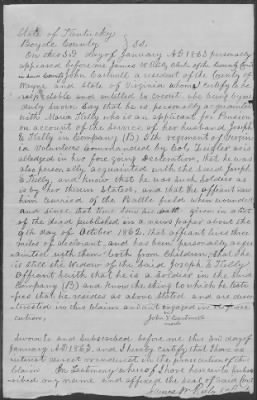 State of Kentucky
Boyde County } SS.
On this 3d day of January AD 1863 personally
appeared before me James W. Kelly Clerk of the County Court
in said County John Cartmell a resident of the County of
Wayne and State of Virginia whom I certify to be
respectable and entitled to credit who being by me
duly sworn say that he is personally acquainted
with Maria Kelly who is an applicant for Pension
on account of the service of her husband Joseph
S Kelly in Company (B) 5th regiment of Virginia
Volunteers commanded by Col. Zeigler as is
alledged in her fore going declaration, that he was
also personally acquainted with the said Joseph
S Kelly and know that he was such soldier as
is by her therein stated, and that the affiant saw
him carried off the Battle field when wounded
and since that time
of the dead published in a news paper about the
9th day of October 1862, that affiant lives three
miles of declarant, and has been personally acqu-
ainted with them both from Children; that She
is still the widow of the said Joseph S Kelly
Affiant further saith that he is a Soldier in the said
Company (B) and know the thing to which he testi-
fies that he resides as above stated and are disin-
terested in this claim and not engaged in its prose-
cution;
John Cartmell
mark
Sworn to and subscribed before me this 3d day of
January AD 1863, and I hereby certify that I have no
interest direct or indirect in the prosecution of this
claim In testimony whereof I have hereunto subsc-
ribed my name and affixed the seal of said Court
James W. Kelly Clerk